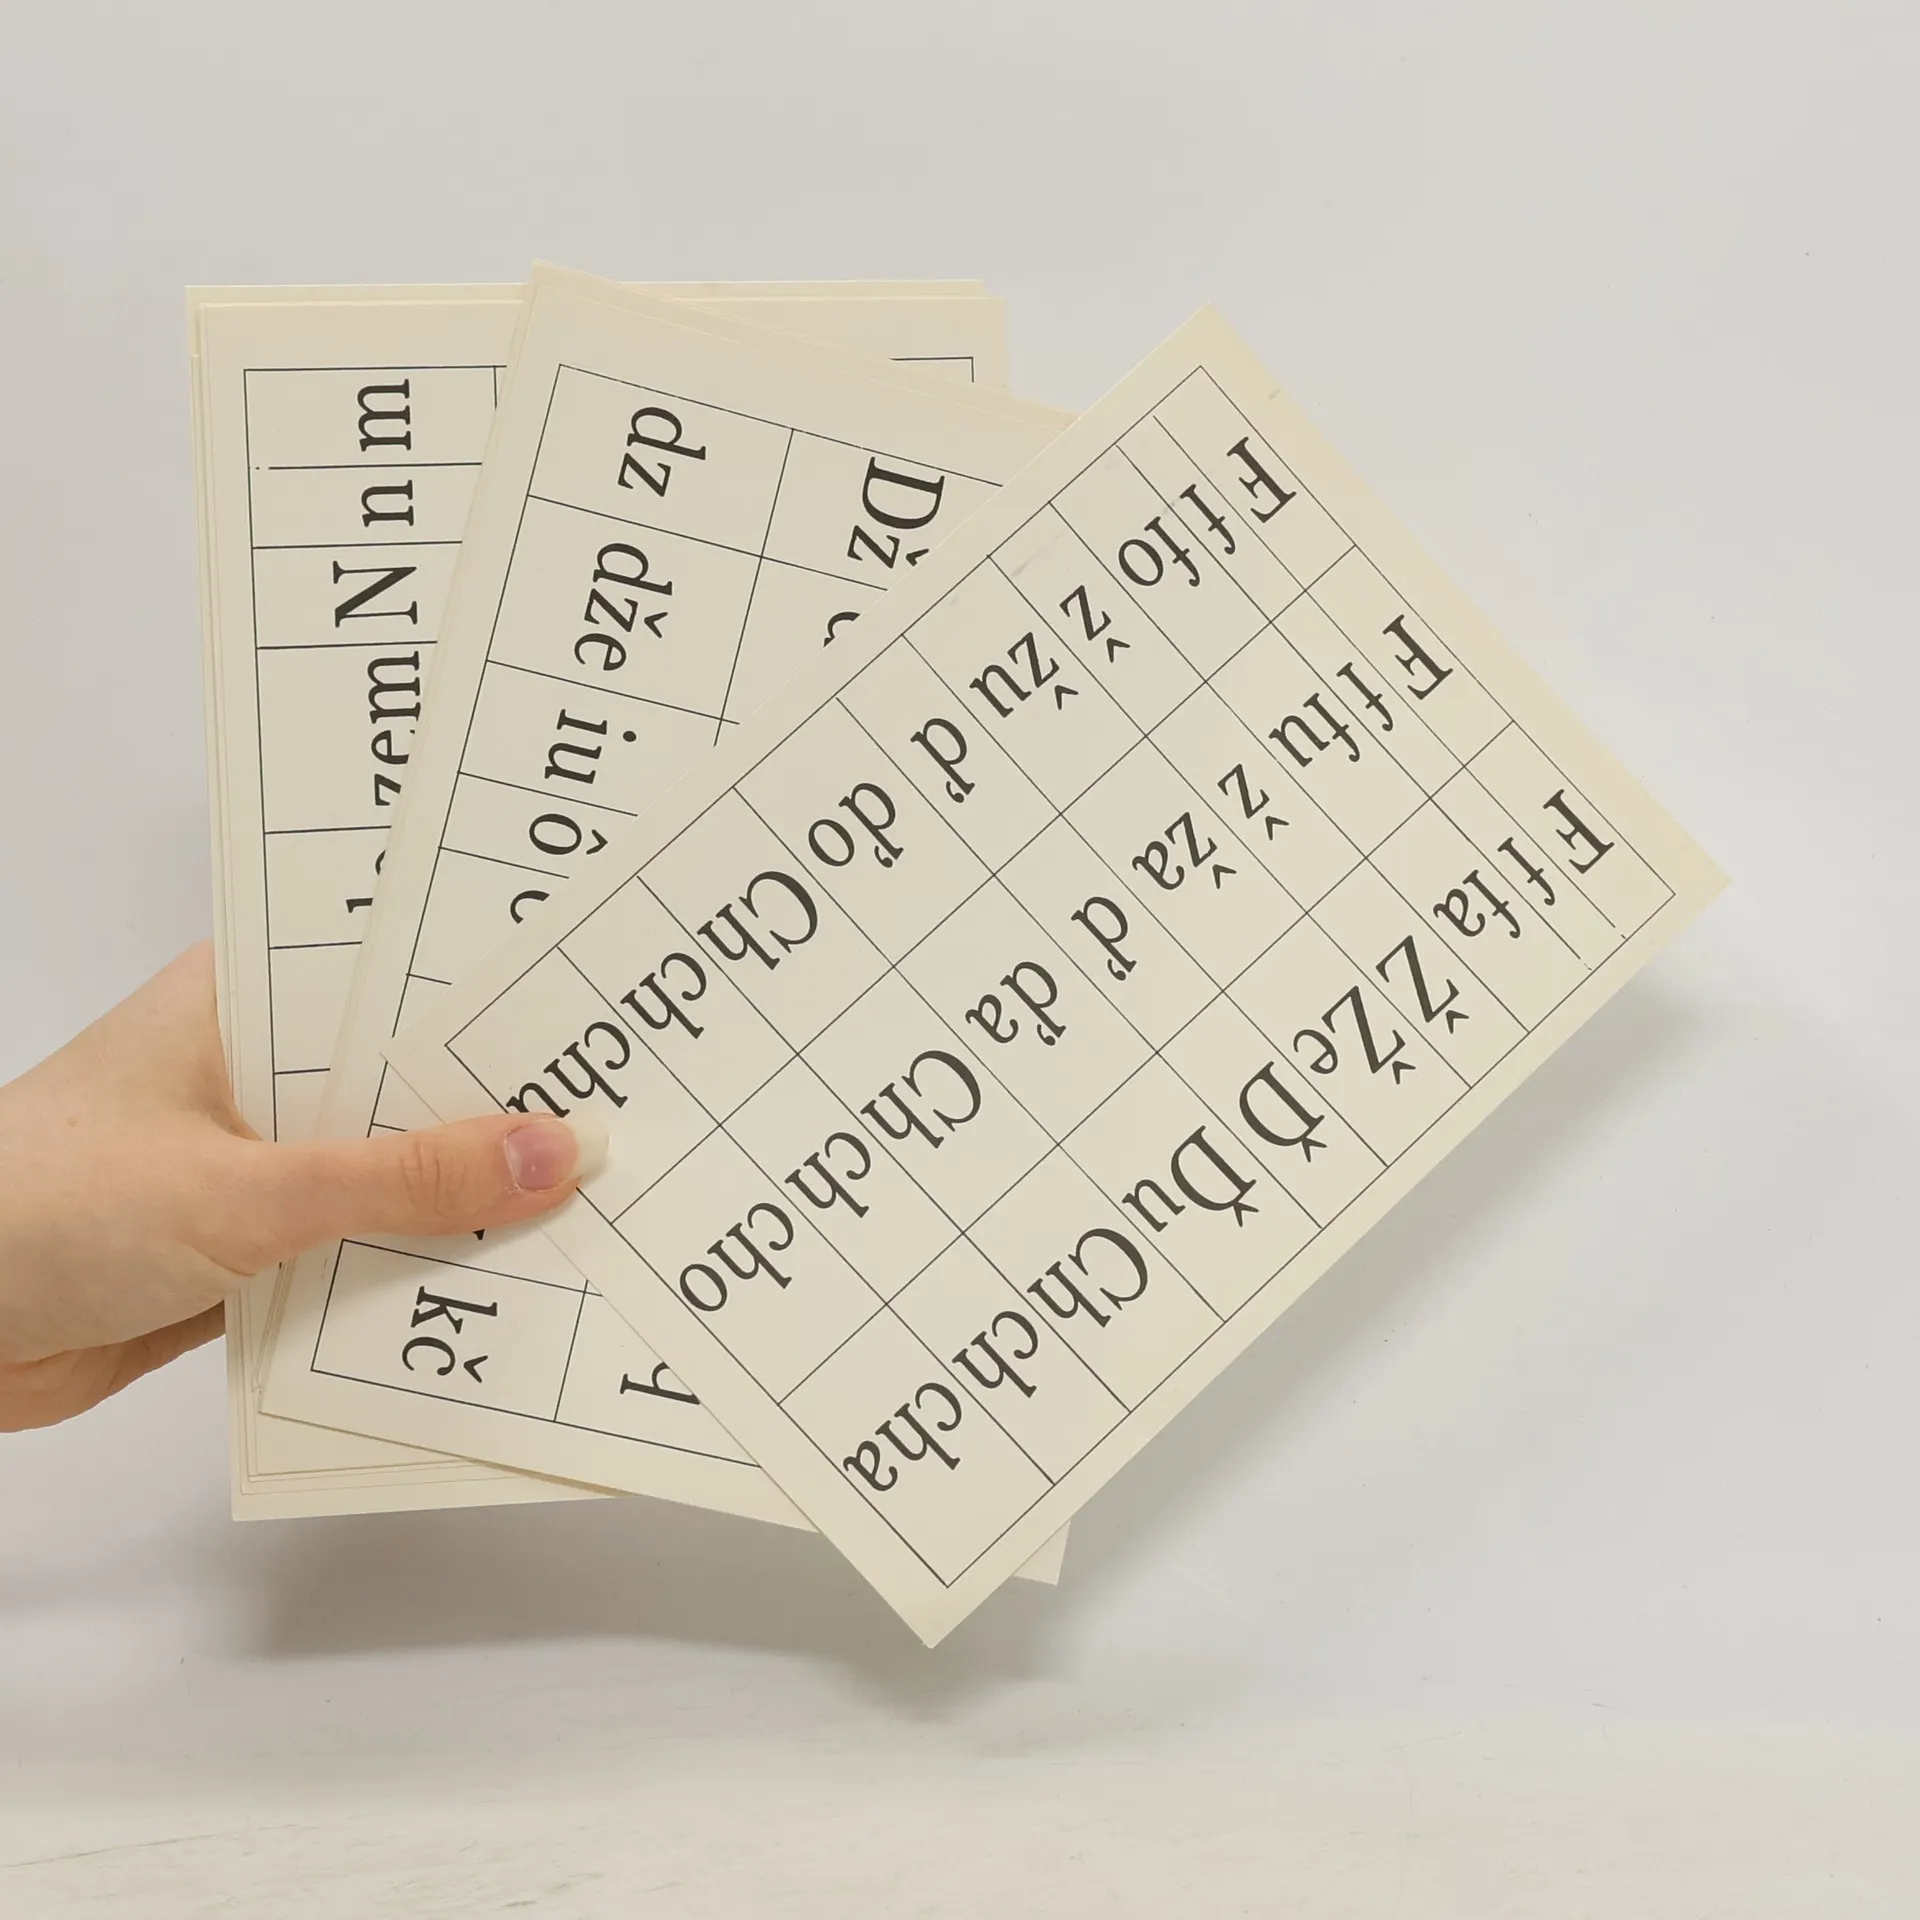 zem N n m
Dž
dz dže iu ô kč
F f fa Ž Že Ď Ďu Ch ch cha
F f fu ž ža ď ďa Ch ch cho
F f fo ž žu ď ďo Ch ch chu